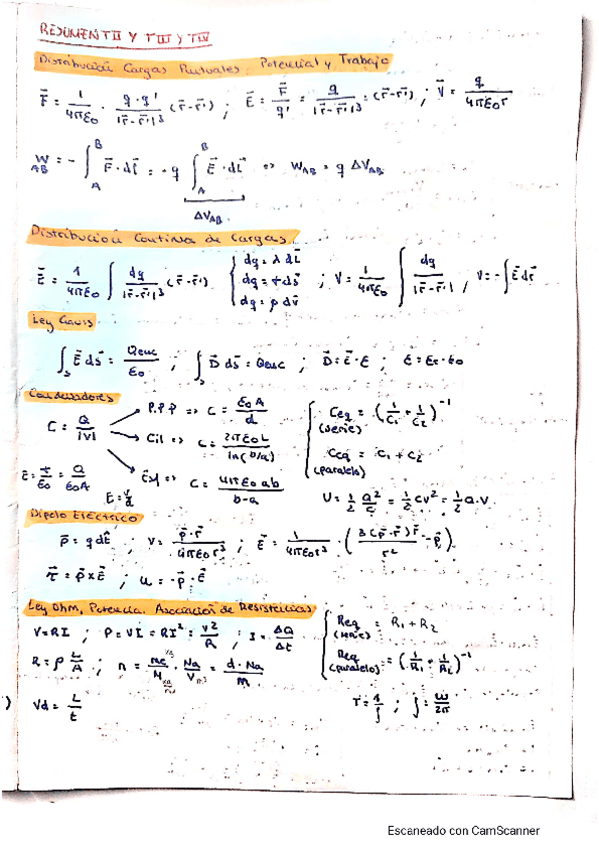 RESUMEN TII Y TIII Y TIV
Distribución Cargas Puntuales. Potencial y Trabajo
F⃗ = 1/4πε₀ · q·q'/|r⃗-r⃗'|³ (r⃗-r⃗') ; E⃗ = F⃗/q' = q/|r⃗-r⃗'|³ = (r⃗-r⃗') ; V⃗ = q/4πε₀r
W_AB = -∫_A^B F⃗·dl⃗ = -q ∫_A^B E⃗·dl⃗ => W_AB = q ΔV_AB
ΔV_AB.
Distribución Continua de Cargas.
E⃗ = 1/4πε₀ ∫ dq/|r⃗-r⃗'|³ (r⃗-r⃗') { dq = λ dL⃗ ; dq = σ ds⃗ ; dq = ρ dv⃗ ; V = 1/4πε₀ ∫ dq/|r⃗-r⃗'| / V = -∫E⃗dr⃗
Ley Gauss
∫_S E⃗ ds⃗ = Qenc/ε₀ ; ∫_S D⃗ ds⃗ = Qenc ; D⃗ = ε⃗·E ; ε = εr·ε₀
Condensadores
C = Q/|V|
P.P.P => C = ε₀A/d
Cil => C = 2πε₀L/ln(b/a)
Esf => C = 4πε₀ab/b-a
Ceq (serie) = (1/C₁ + 1/C₂)⁻¹
Ceq (paralelo) = C₁ + C₂
E = σ/ε₀ = Q/ε₀A
E = V/d
U = 1/2 Q²/C = 1/2 CV² = 1/2 Q·V
Dipolo Eléctrico
p⃗ = qdl⃗ ; V = p⃗·r⃗/4πε₀r³ ; E⃗ = 1/4πε₀r³ · (3(p⃗·r⃗)r⃗/r² - p⃗).
τ⃗ = p⃗×E⃗ ; u = -p⃗·E⃗
Ley Ohm, Potencia. Asociación de Resistencias
V=RI ; P=VI=RI² = V²/R ; I = ΔQ/Δt
Req (serie) = R₁+R₂
R = ρ L/A ; n = Ne/M · Na/V = d·Na/m
Req (paralelo) = (1/R₁ + 1/R₂)⁻¹
Vd = L/t
T = 1/f ; f = ω/2π
Escaneado con CamScanner